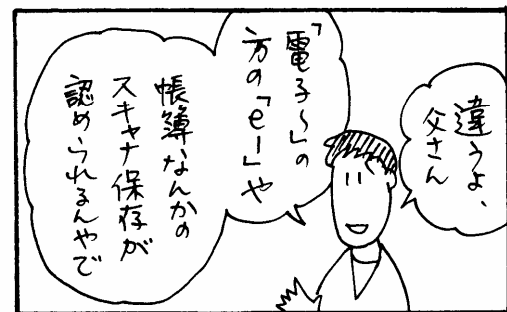 違うよ、
父さん
「電子〜」の
方の「e-」や
帳簿なんかの
スキャナ保存が
認められるんやで